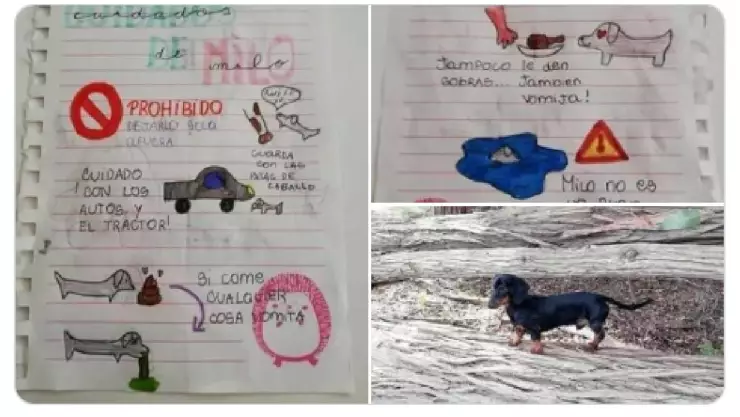 cuidados
CUIDADOS
de milo
DE MILO
PROHIBIDO
DEJARLO SOLO
AFUERA
GUARDA
CON LAS
PATAS DE
CABALLO
CUIDADO
¡CON LOS
AUTOS Y
EL TRACTOR!
Si COME
CUALQUIER
COSA VOMITA
TAMPOCO le deN
SOBRAS... TAMBIEN
VOMITA!
MiLO NO es